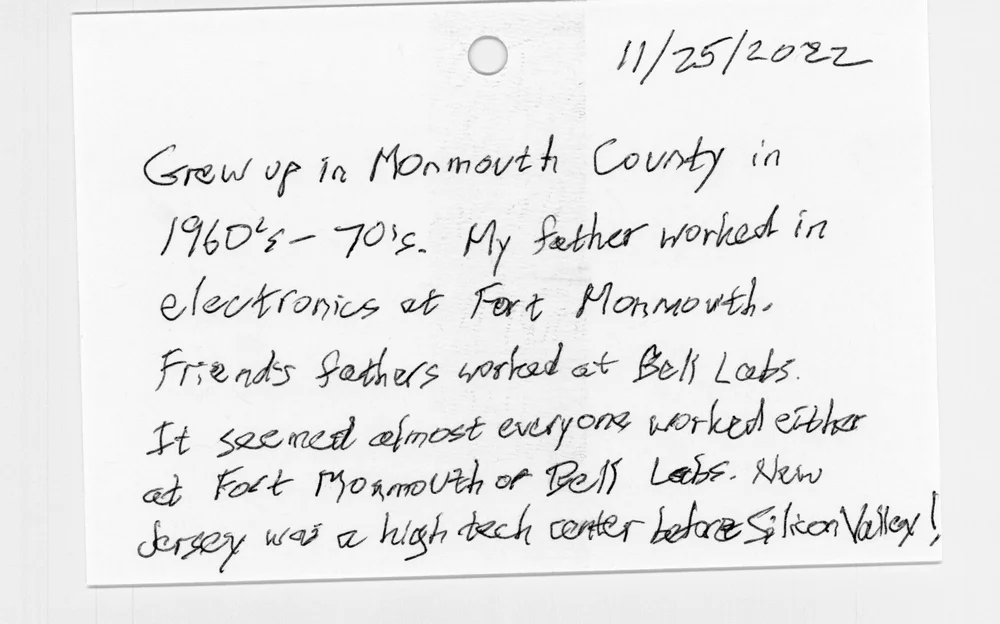 11/25/2022
Grew up in Monmouth County in
1960's - 70's. My father worked in
electronics at Fort Monmouth.
Friends fathers worked at Bell Labs.
It seemed almost everyone worked either
at Fort Monmouth or Bell Labs. New
Jersey was a high tech center before Silicon Valley!